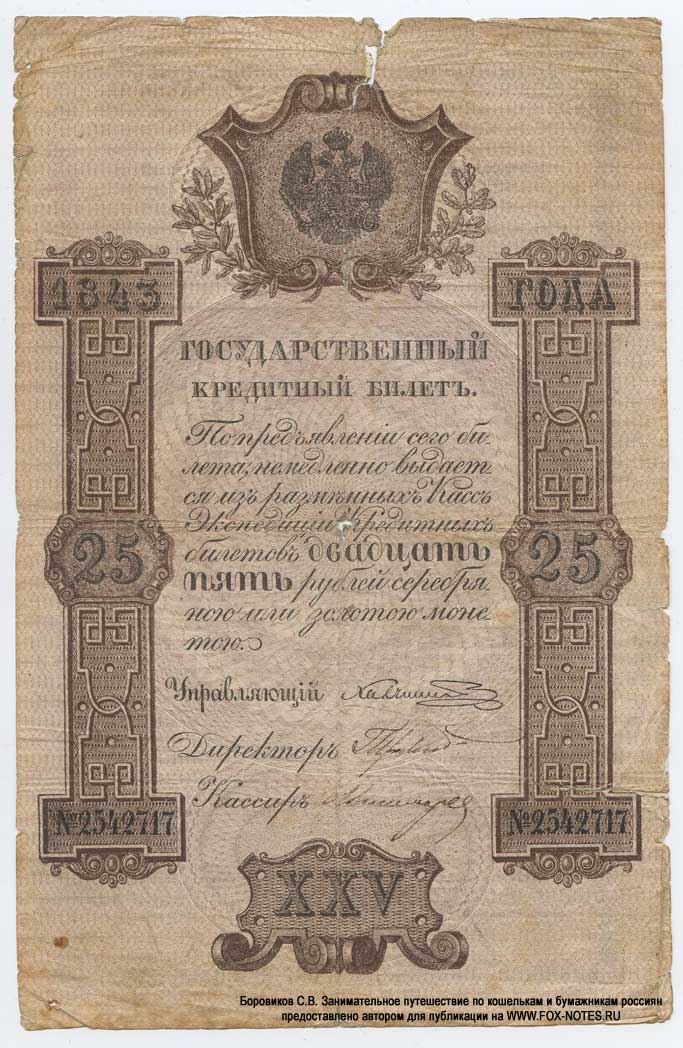 1843 ГОДА
ГОСУДАРСТВЕННЫЙ
КРЕДИТНЫЙ БИЛЕТЪ.
По предъявленіи сего би-
лета, немедленно выдает-
ся изъ размѣнныхъ Кассъ
Экспедиціи Кредитныхъ
билетовъ двадцать
пять рублей серебря-
ною или золотою моне-
тою.
25 25
Управляющій
Директоръ
Кассиръ
№2542717 №2542717
XXV
Боровиков С.В. Занимательное путешествие по кошелькам и бумажникам россиян
предоставлено автором для публикации на WWW.FOX-NOTES.RU